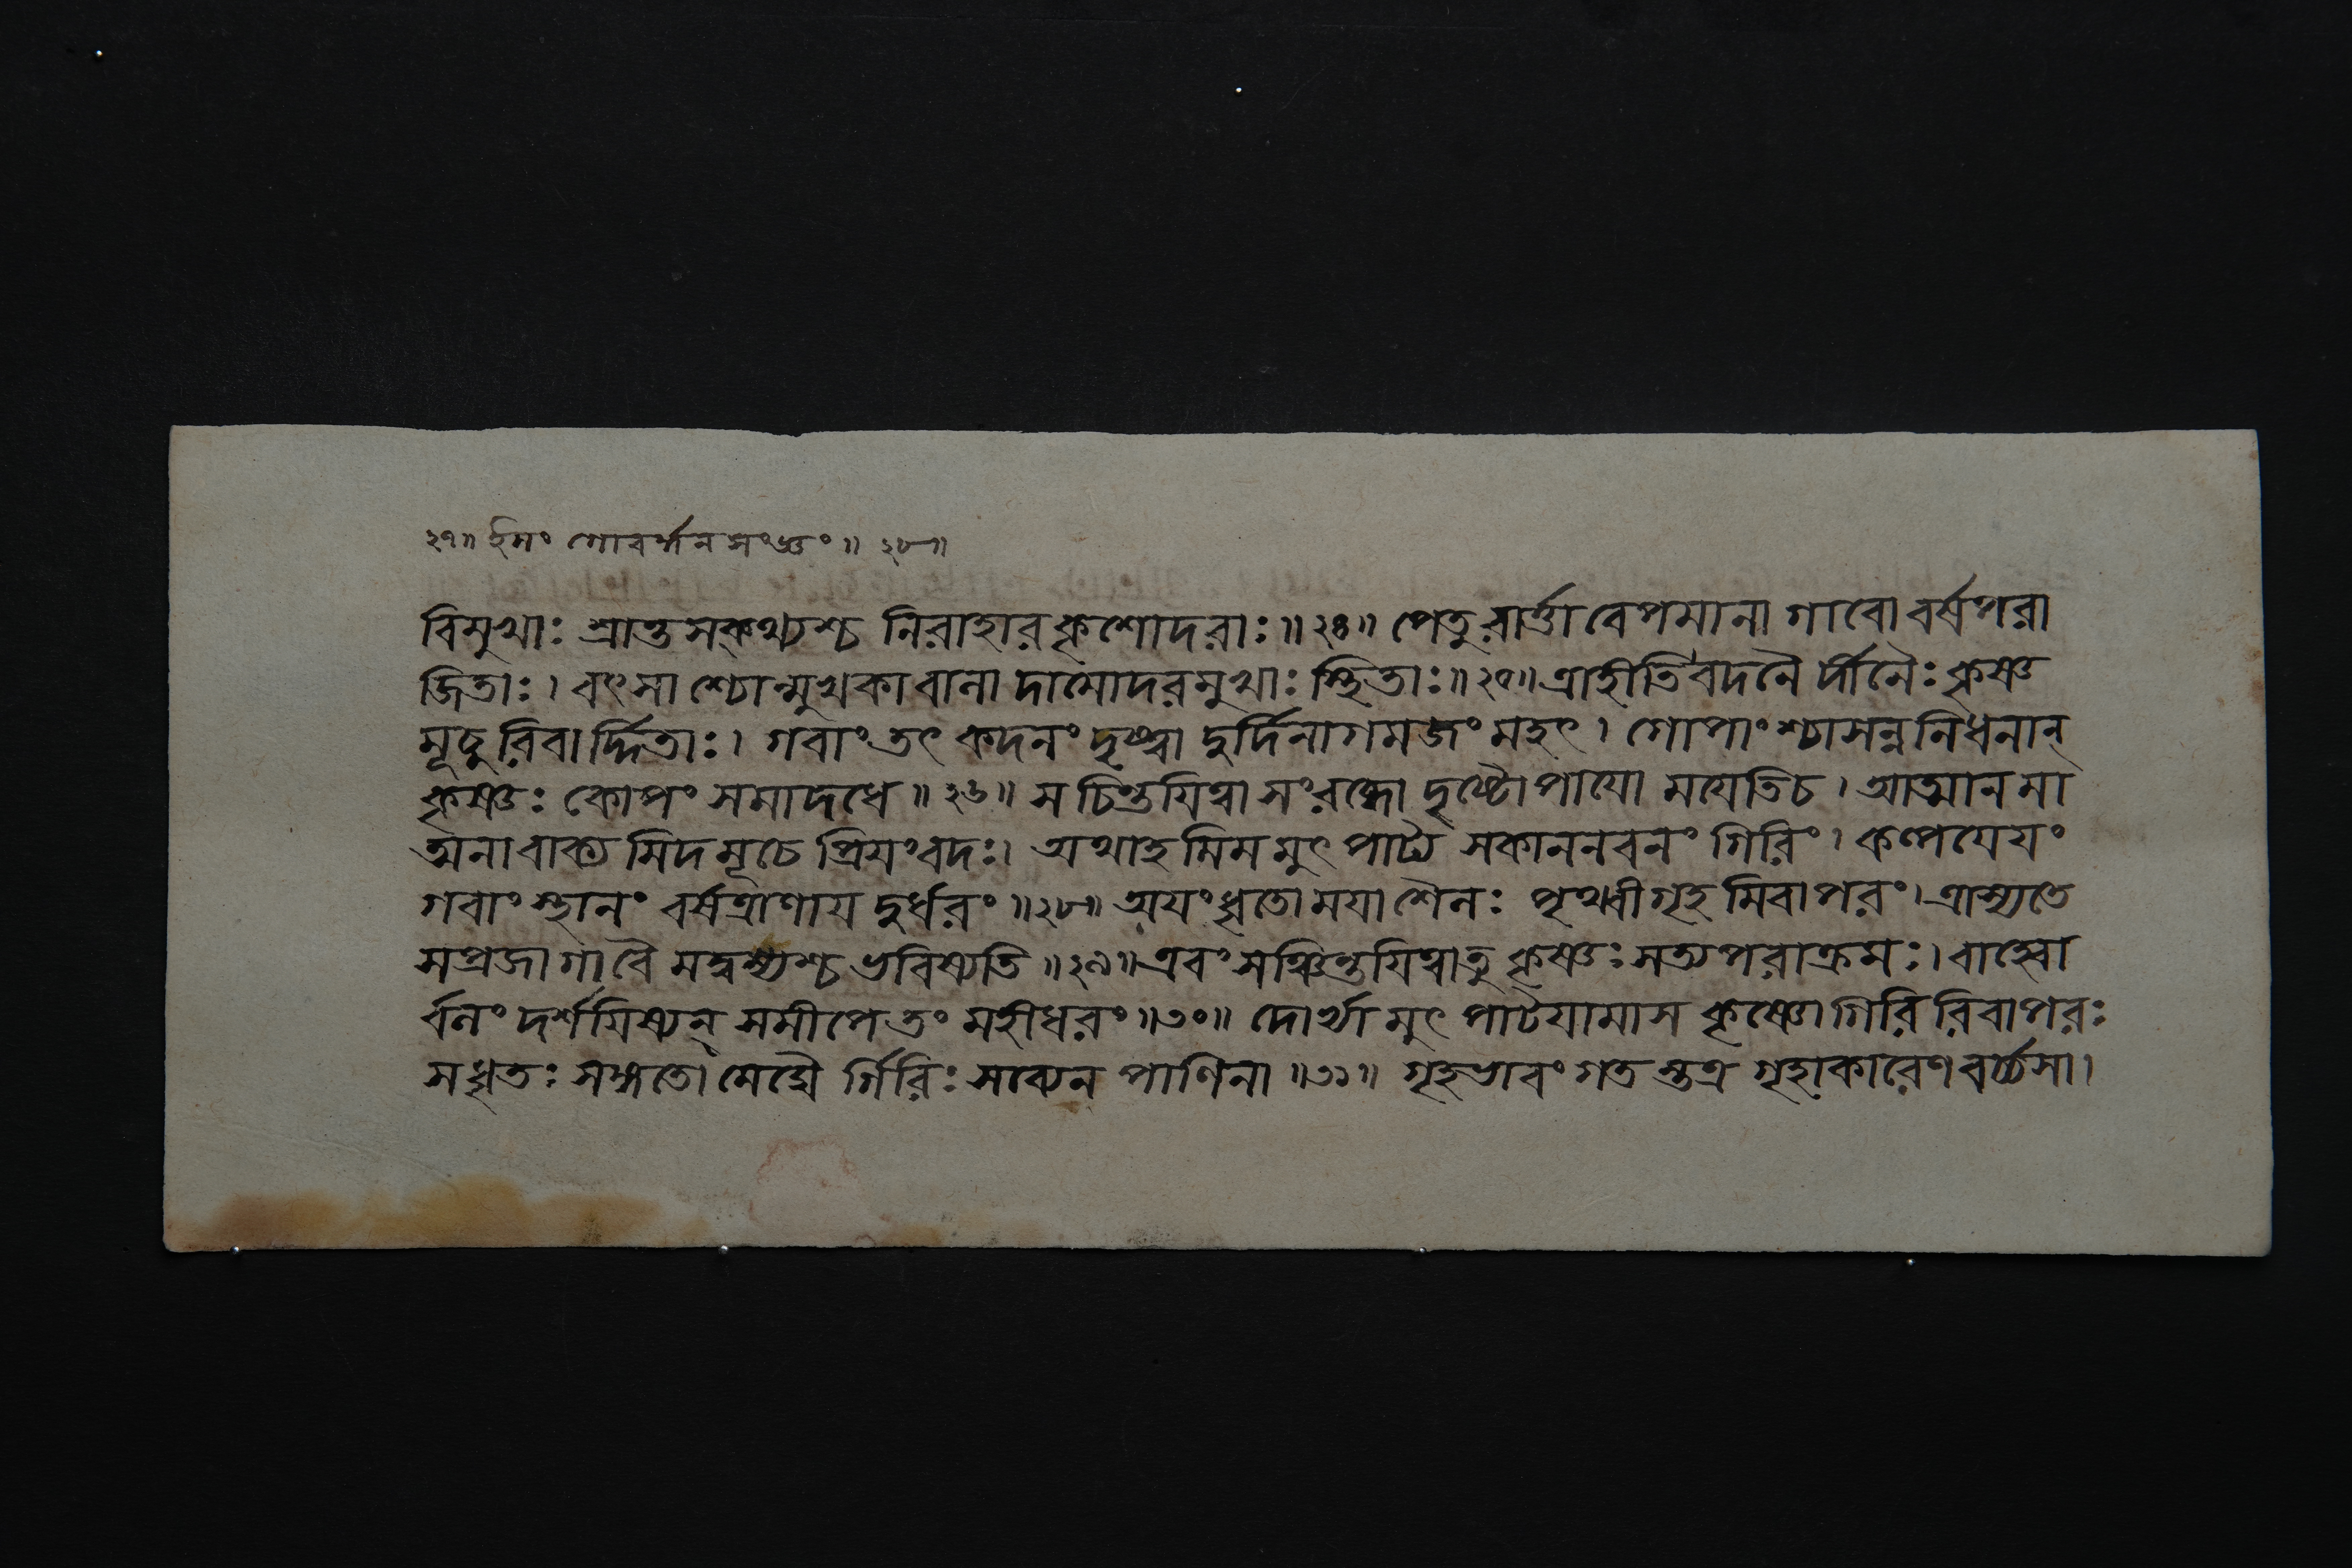 ২৭॥ ইমং গোবর্দ্ধন সংজ্ঞং॥ ২৮॥
বিমুখাঃ শ্রান্তসক্থ্যশ্চ নিরাহারকৃশোদরাঃ॥২৪॥ পেতুরার্ত্তা বেপমানা গাবো বর্ষপরা
জিতাঃ। বৎসা শ্চোন্মুখকাবানা দামোদরমুখাঃ স্থিতাঃ॥২৫॥ত্রাহীতিবদনৈ র্দীনৈঃ কৃষ্ণ
মূচু রিবার্দ্দিতাঃ। গবাং তৎ কদনং দৃষ্ট্বা দুর্দিনাগমজং মহৎ। গোপাংশ্চাসন্ননিধনান্
কৃষ্ণঃ কোপং সমাদধে॥২৬॥ স চিন্তয়িত্বা সংরব্ধো দৃষ্টোপাযো ময়েতিচ। আত্মান মা
ত্মনা বাক্য মিদমূচে প্রিয়ংবদঃ। অথাহ মিমমুৎ পাট্য সকাননবনং গিরিং। কল্পয়েয়ং
গবাং স্থানং বর্ষত্রাণায় দুর্ধরং॥২৮॥ অয়ং ধৃতো ময়া শৈলঃ পৃথ্বীগৃহ মিবাপরং। ত্রাস্যতে
সপ্রজা গাবৈ মদ্বশ্যশ্চ ভবিষ্যতি॥২৯॥এবং সঞ্চিন্তয়িত্বাতু কৃষ্ণঃ সত্যপরাক্রমঃ। বাহ্বো
র্বলং দর্শয়িষ্যন্ সমীপে তং মহীধরং॥৩০॥ দোর্ভ্যামুৎ পাটয়ামাস কৃষ্ণো গিরি রিবাপরঃ
স ধৃতঃ সঙ্গতো মেঘৈ র্গিরিঃ সব্যেন পাণিনা॥৩১॥ গৃহভাবং গত স্তত্র গৃহাকারেণ বর্চ্চসা।